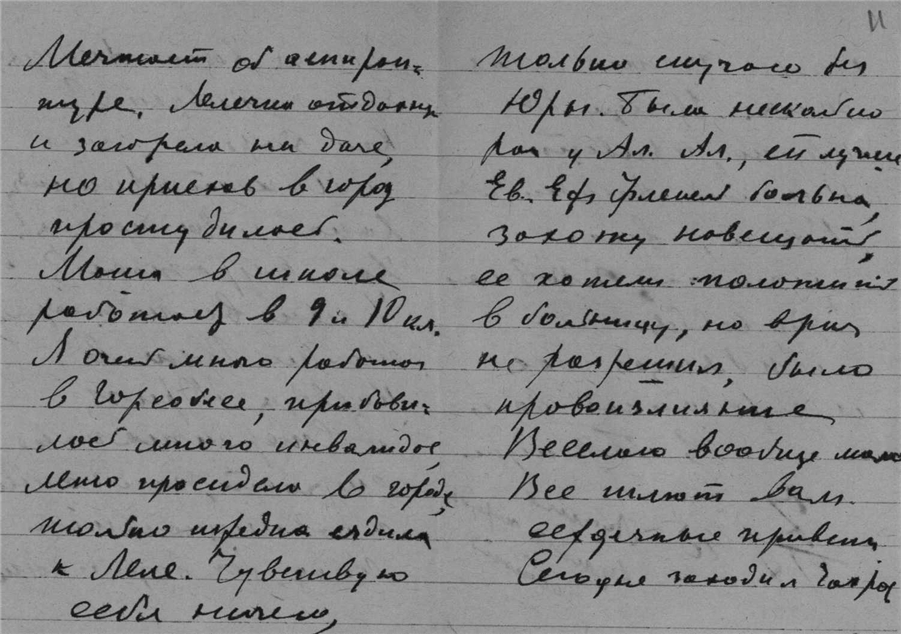 11
Мечтает об аспиран-
туре. Лелечка отдохнула
и загорела на даче,
но приехав в город
простудилась.
Маша в школе
работает в 9 и 10 кл.
Я очень много работаю
в Горсобесе, прибави-
лось много инвалидов,
лето просидела в городе,
только изредка ездила
к Леле. Чувствую
себя ничего,
только скучаю без
Юры. Была несколько
раз у Ал. Ал., ей лучше
Ев. Еф. больна,
захожу навещать,
ее хотели положить
в больницу, но врач
не разрешил, было
кровоизлияние
Веселого вообще мало
Все шлют Вам
сердечные приветы
Сегодня заходил